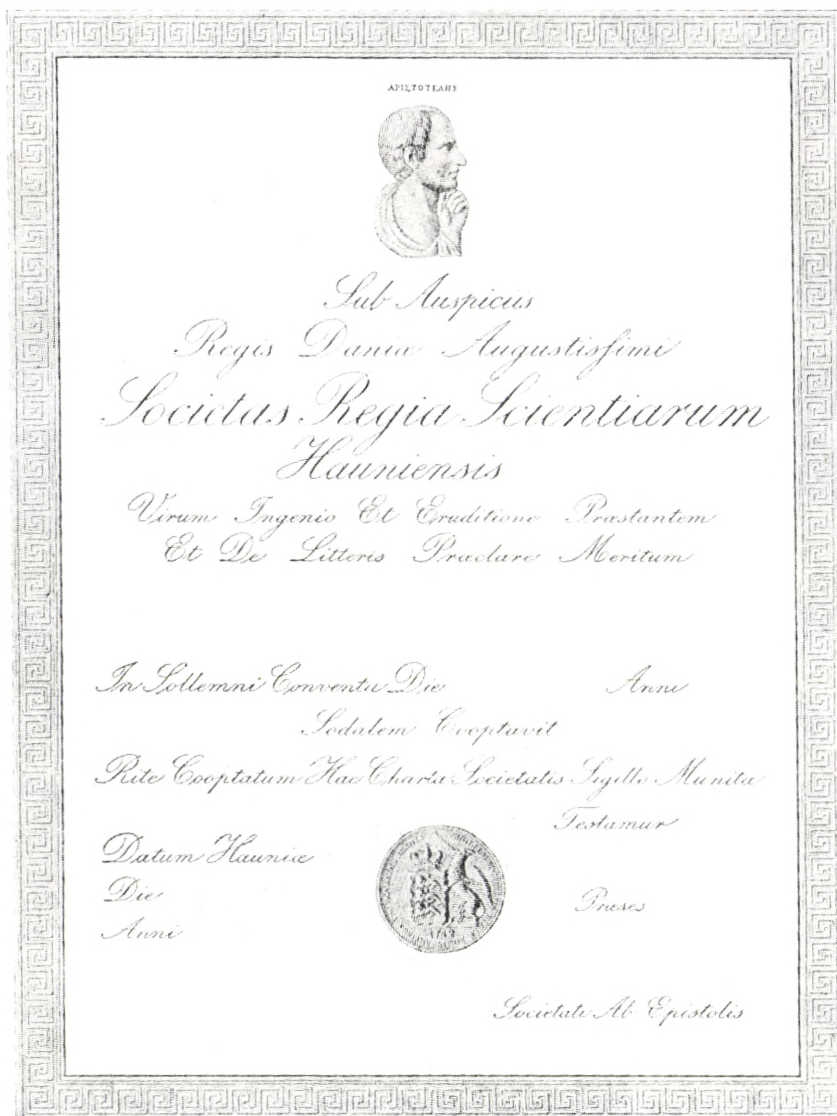 ΑΡΙΣΤΟΤΕΛΗΣ
Sub Auspiciis
Regis Daniæ Augustissimi
Societas Regia Scientiarum
Hauniensis
Virum Ingenio Et Eruditione Præstantem
Et De Litteris Præclare Meritum
In Sollemni Conventu Die Anni
Sodalem Cooptavit
Rite Cooptatum Hac Charta Societatis Sigillo Munita
Testamur
Datum Hauniæ
Die
Anni
Præses
Societati Ab Epistolis